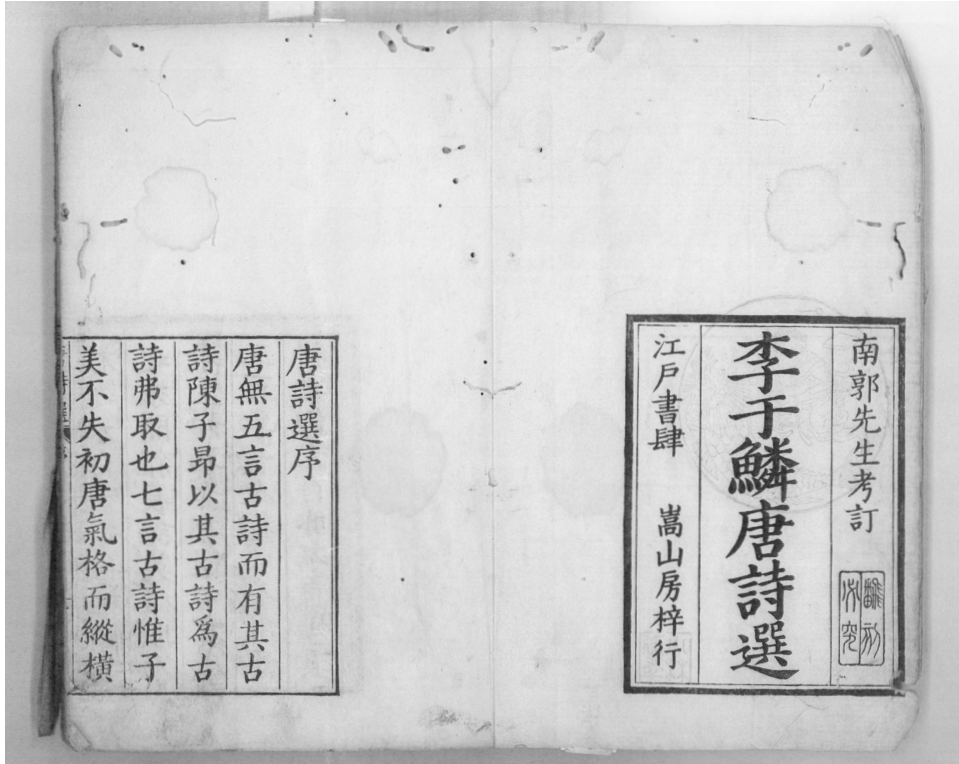 南郭先生考訂
李于鱗唐詩選
江戶書肆　嵩山房梓行
翻刻
必究
唐詩選序
唐無五言古詩而有其古
詩陳子昂以其古詩爲古
詩弗取也七言古詩惟子
美不失初唐氣格而縱橫